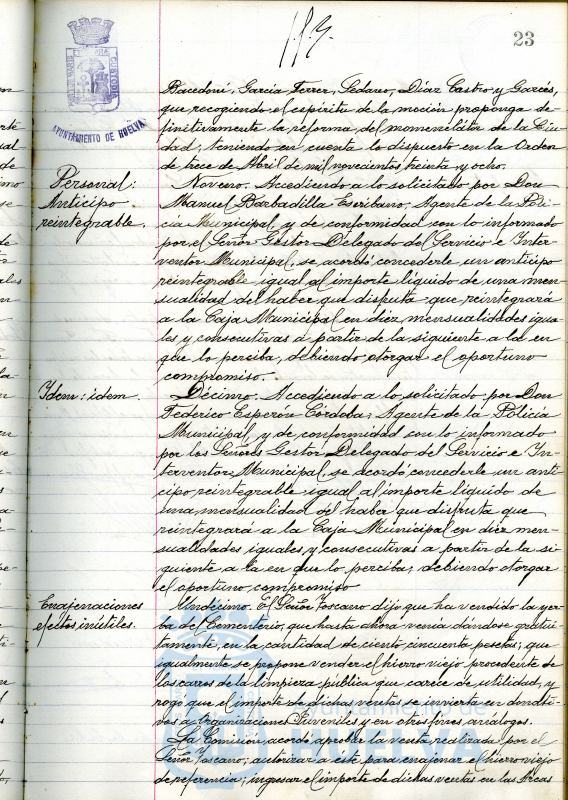 23
AYUNTAMIENTO DE HUELVA
Bacedoni, García Ferrer, Sedano, Díaz Castro y Garcés,
que recogiendo el espíritu de la moción proponga de-
finitivamente la reforma del nomenclátor de la Ciu-
dad, teniendo en cuenta lo dispuesto en la Orden
de trece de Abril de mil novecientos treinta y ocho.
Personal:
Anticipo
reintegrable.
Noveno. Accediendo a lo solicitado por Don
Manuel Barbadilla Escribano, Agente de la Poli-
cía Municipal y de conformidad con lo informado
por el Señor Gestor Delegado del Servicio e Inter-
ventor Municipal, se acordó concederle un anticipo
reintegrable igual al importe líquido de una men-
sualidad del haber que disfruta que reintegrará
a la Caja Municipal en diez mensualidades igua-
les y consecutivas a partir de la siguiente a la en
que lo perciba, debiendo otorgar el oportuno
compromiso.
Idem: idem.
Décimo. Accediendo a lo solicitado por Don
Federico Esperón Córdoba, Agente de la Policía
Municipal y de conformidad con lo informado
por los Señores Gestor Delegado del Servicio e In-
terventor Municipal, se acordó concederle un anti-
cipo reintegrable igual al importe líquido de
una mensualidad del haber que disfruta que
reintegrará a la Caja Municipal en diez men-
sualidades iguales y consecutivas a partir de la si-
guiente a la en que lo perciba, debiendo otorgar
el oportuno compromiso
Enajenaciones
efectos inútiles.
Undécimo. El Señor Toscano dijo que ha vendido la yer-
ba del Cementerio, que hasta ahora venía dándose gratuita-
mente, en la cantidad de ciento cincuenta pesetas; que
igualmente se propone vender el hierro viejo procedente de
los carros de la limpieza pública que carece de utilidad, y
rogó que el importe de dichas ventas se invierta en donati-
vos a Organizaciones Juveniles y en otros fines análogos.
La Comisión, acordó aprobar la venta realizada por el
Señor Toscano; autorizar a este para enajenar el hierro viejo
de referencia; ingresar el importe de dichas ventas en las Arcas
Ayuntamiento de
HUELVA